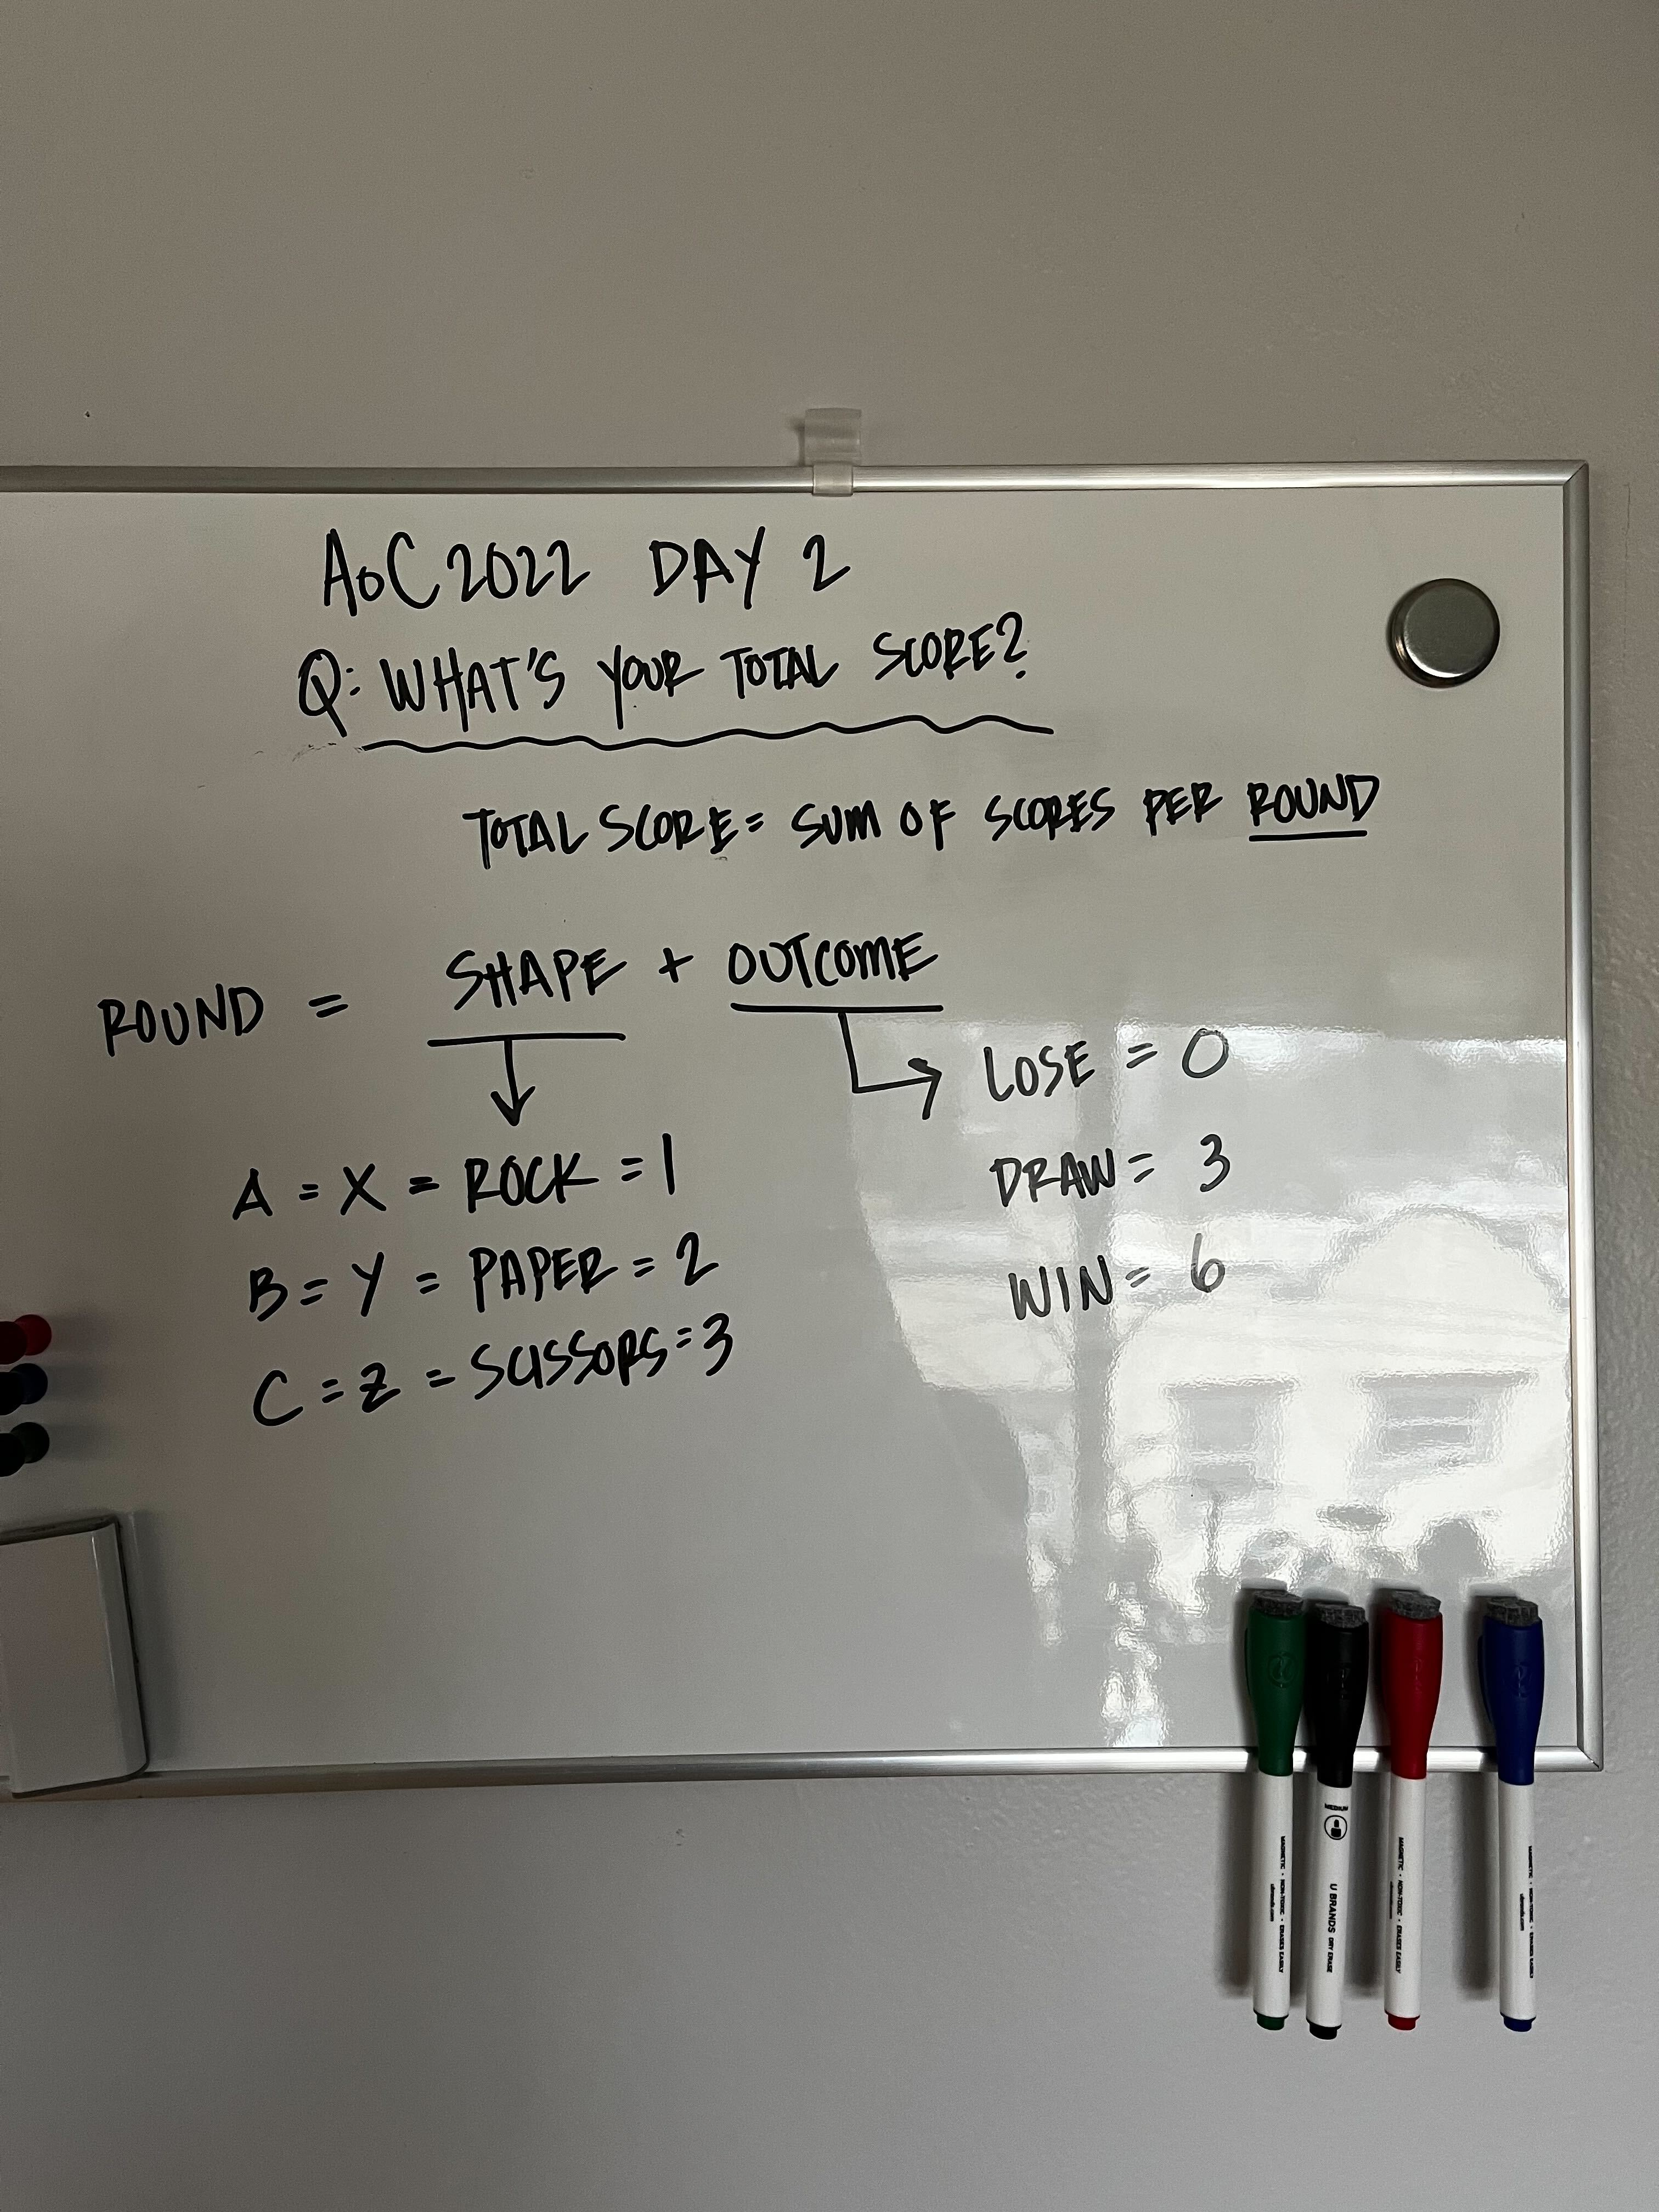 AoC 2022 DAY 2
Q: WHAT'S YOUR TOTAL SCORE?
TOTAL SCORE = SUM OF SCORES PER ROUND
ROUND = SHAPE + OUTCOME
A = X = ROCK = 1
B = Y = PAPER = 2
C = Z = SCISSORS = 3
LOSE = 0
DRAW = 3
WIN = 6
MAGNETIC • NON-TOXIC • ERASES EASILY
MEDIUM
U BRANDS DRY ERASE
MAGNETIC • NON-TOXIC • ERASES EASILY
MAGNETIC • NON-TOXIC • ERASES EASILY